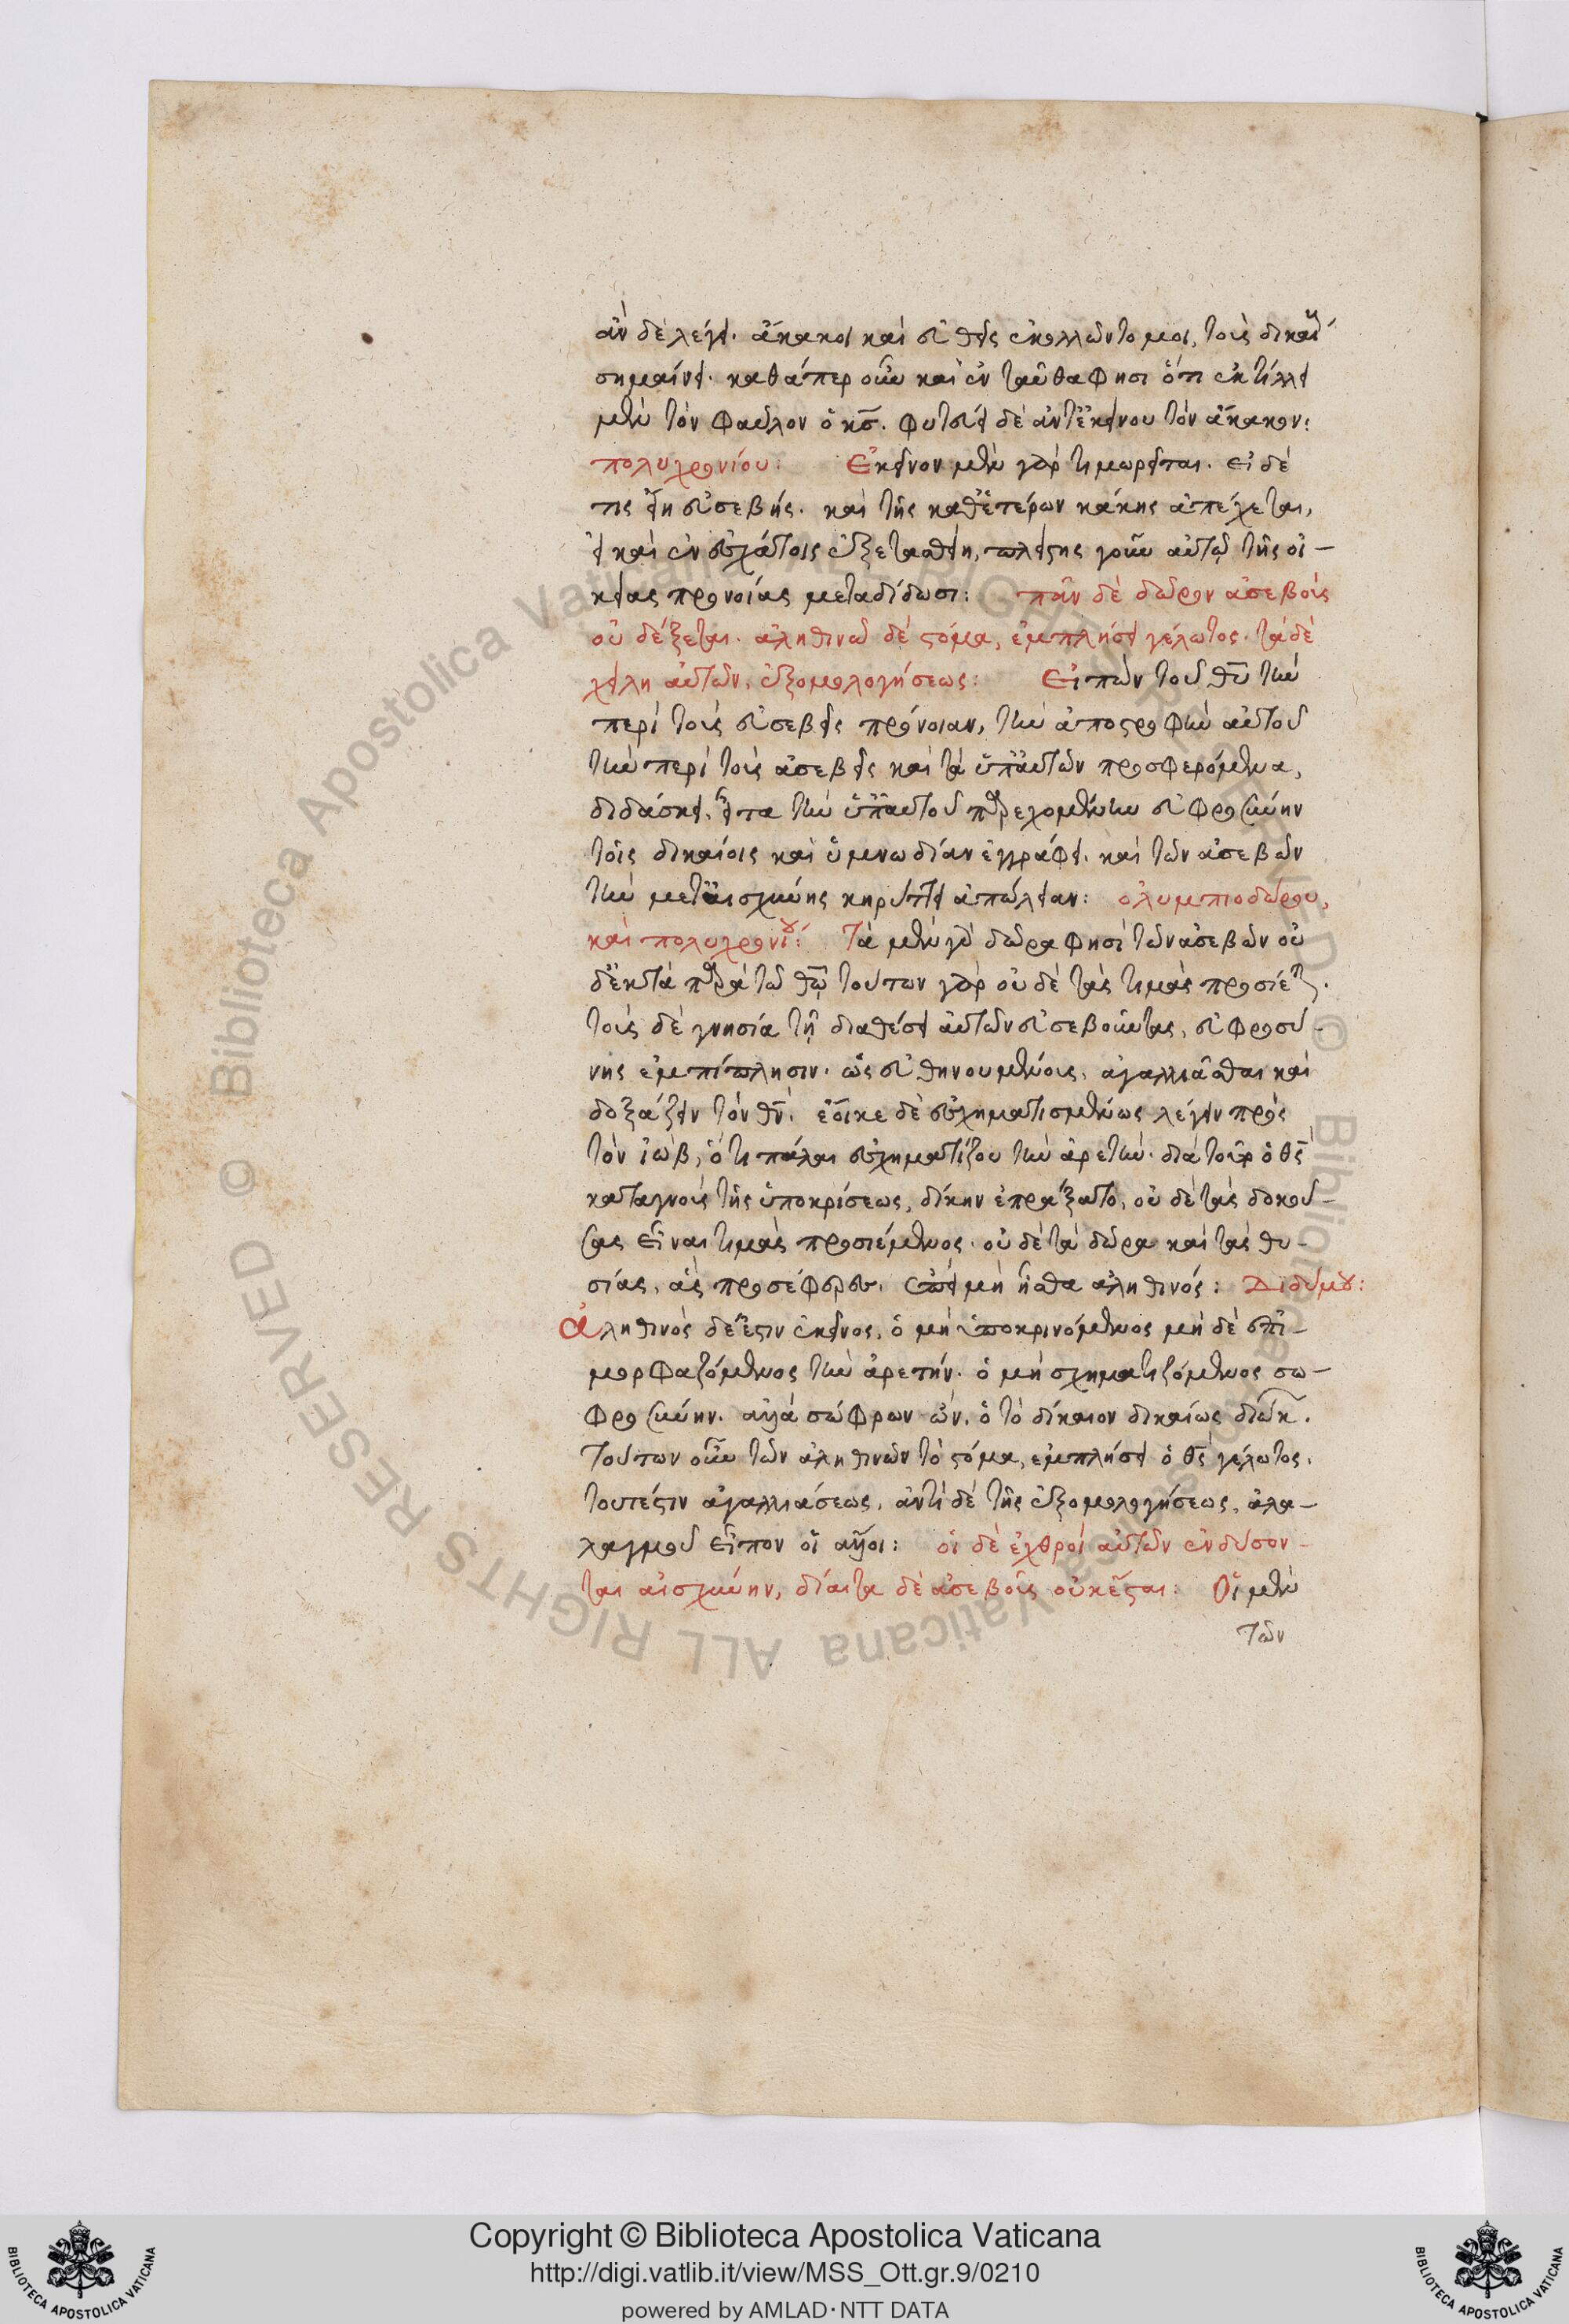 ἂν δὲ λέγει. ἄκακοι καὶ εὐθεῖς ἐκολλῶντο μοι, τοὺς δικαί
σημαίνει. καθάπερ οὖν καὶ ἐνταῦθα φησι ὅτι ἐκτίλλει
μὲν τὸν φαῦλον ὁ κς. φυτεύει δὲ ἀντ' ἐκείνου τὸν ἄκακον:
πολυχρονίου: Ἐκεῖνον μὲν γὰρ τιμωρεῖται. εἰ δέ
τις εἴη εὐσεβής. καὶ τῆς καθ' ἑτέρων κάκης ἀπέχεται,
εἰ καὶ ἐν ἐσχάτοις ἐξετασθείη, πλείστης γοῦν αὐτῷ τῆς οἰ-
κείας προνοίας μεταδίδωσι: πᾶν δὲ δῶρον ἀσεβοῦς
οὐ δέξεται. ἀληθινῶν δὲ στόμα, ἐμπλήσει γέλωτος. τὰ δὲ
χείλη αὐτῶν, ἐξομολογήσεως: Εἰπὼν τοῦ θυ τὴν
περὶ τοὺς εὐσεβεῖς πρόνοιαν, τὴν ἀποστροφὴν αὐτοῦ
τὴν περὶ τοὺς ἀσεβεῖς καὶ τὰ ὑπ' αὐτῶν προσφερόμενα,
διδάσκει. εἶτα τὴν ὑπ' αὐτοῦ παρεχομένην εὐφροσύνην
τοῖς δικαίοις καὶ ὑμνωδίαν ἐγγράφει. καὶ τῶν ἀσεβῶν
τὴν μετ' αἰσχύνης κηρύττει ἀπώλειαν: ολυμπιοδώρου,
καὶ πολυχρονίου: Τὰ μὲν γὰρ δῶρα φησὶ τῶν ἀσεβῶν οὐ
δεκτὰ παρὰ τῷ θῶ τούτων γὰρ οὐδὲ τὰς τιμὰς προσίεται.
τοὺς δὲ γνησία τῇ διαθέσει αὐτὸν εὐσεβοῦντας, εὐφροσύ-
νης ἐμπίπλησιν. ὡς εὐθηνουμένους, ἀγαλλιᾶσθαι καὶ
δοξάζειν τὸν θν. ἔοικε δὲ ἐσχηματισμένως λέγειν πρὸς
τὸν ἰὼβ, ὅτι πάλαι ἐσχηματίζου τὴν ἀρετὴν. διὰ τοῦτο ὁ θς
καταγνοὺς τῆς ὑποκρίσεως, δίκην ἐπράξατο, οὐδὲ τὰς δοκού-
σας εἶναι τιμὰς προσιέμενος. οὐδὲ τὰ δῶρα καὶ τὰς θυ-
σίας, ἃς προσέφερες. ἐπεὶ μὴ ἦσθα ἀληθινός: Διδύμου:
ἀληθινὸς δέ ἐστιν ἐκεῖνος, ὁ μὴ ὑποκρινόμενος μὴ δὲ ἐπι-
μορφαζόμενος τὴν ἀρετήν. ὁ μὴ σχηματιζόμενος σω-
φροσύνην. ἀλλὰ σώφρων ὤν, ὁ τὸ δίκαιον δικαίως διώκ.
Τούτων οὖν τῶν ἀληθινῶν τὸ στόμα, ἐμπλήσει ὁ θς γέλωτος.
τουτέστιν ἀγαλλιάσεως, ἀντὶ δὲ τῆς ἐξομολογήσεως, ἀλα-
λαγμοῦ εἶπον οἱ ἄλλοι: οἱ δὲ ἐχθροὶ αὐτῶν ἐνδύσον-
ται αἰσχύνην, δίαιτα δὲ ἀσεβοῦς οὐκ ἔσται: Οἱ μὲν
τῶν
Copyright © Biblioteca Apostolica Vaticana
http://digi.vatlib.it/view/MSS_Ott.gr.9/0210
powered by AMLAD·NTT DATA